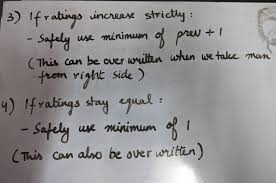 3) If ratings increase strictly :
- Safely use minimum of prev + 1
( This can be over written when we take max
from right side )
4) If ratings stay equal :
- Safely use minimum of 1
( This can also be over written )